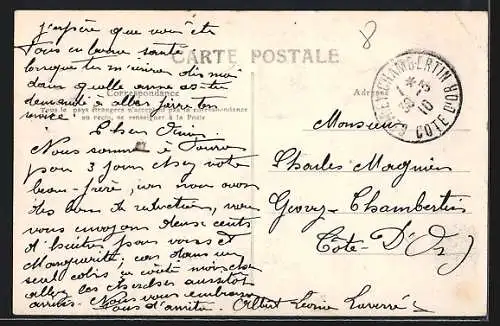 j'espère que vous êts
tous en bonne santé
lorsque tu m'écriras dis moi
dans quelle arme as-tu
demandé à aller faire ton
service!
CARTE POSTALE
Correspondance
Tous les pays étrangers n'acceptent pas la correspondance
au recto, se renseigner à la Poste
Cher Ami
Nous sommes à
pour 3 jours chez votre
beau-frère, car nous avons
des bons de réduction, nous
vous envoyons deux cents
d'huitres pour vous et
Marguerite; car dans un
seul colis ça coûte moins cher
allez les chercher aussitôt
arrivés. Nous vous embrassons
tous d'amitié. Albert Léonie
8
Adresse
GEVREY-CHAMBERTIN
COTE D'OR
10
Monsieur
Charles Magnien
Gevrey-Chambertin
Côte-D'Or